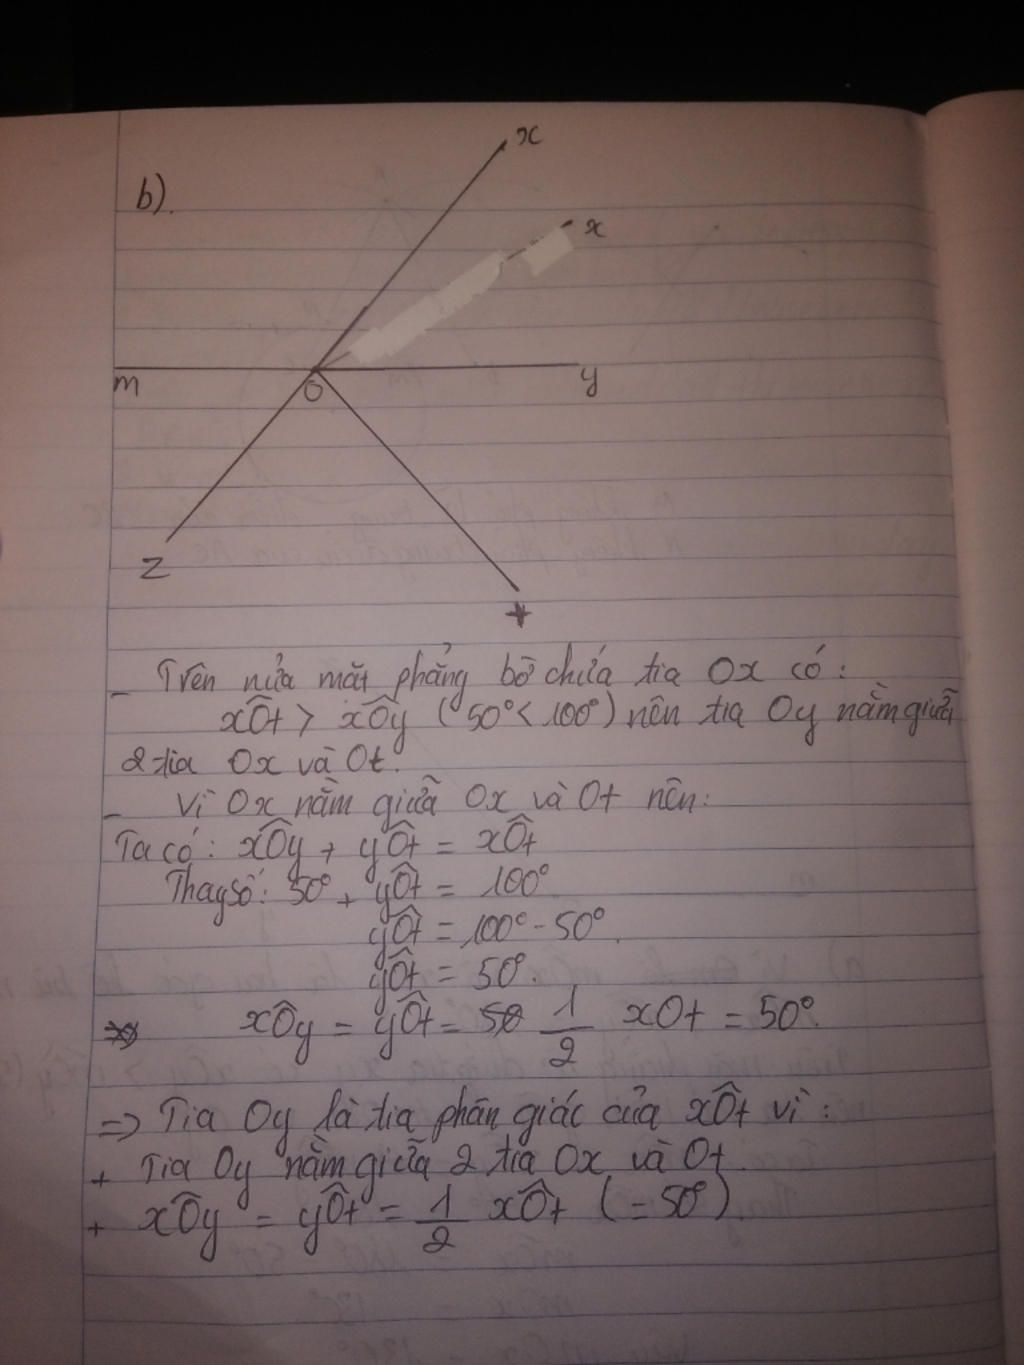 b).
x
x
m
O
y
z
t
- Trên nửa mặt phẳng bờ chứa tia Ox có:
xÔt > xÔy (50° < 100°) nên tia Oy nằm giữa
2 tia Ox và Ot.
- Vì Ox nằm giữa Ox và Ot nên:
Ta có: xÔy + yÔt = xÔt
Thay số: 50° + yÔt = 100°
yÔt = 100° - 50°.
yÔt = 50°.
xÔy = yÔt = 1/2 xOt = 50°.
=> Tia Oy là tia phân giác của xÔt vì:
+ Tia Oy nằm giữa 2 tia Ox và Ot.
+ xÔy = yÔt = 1/2 xÔt (= 50°).